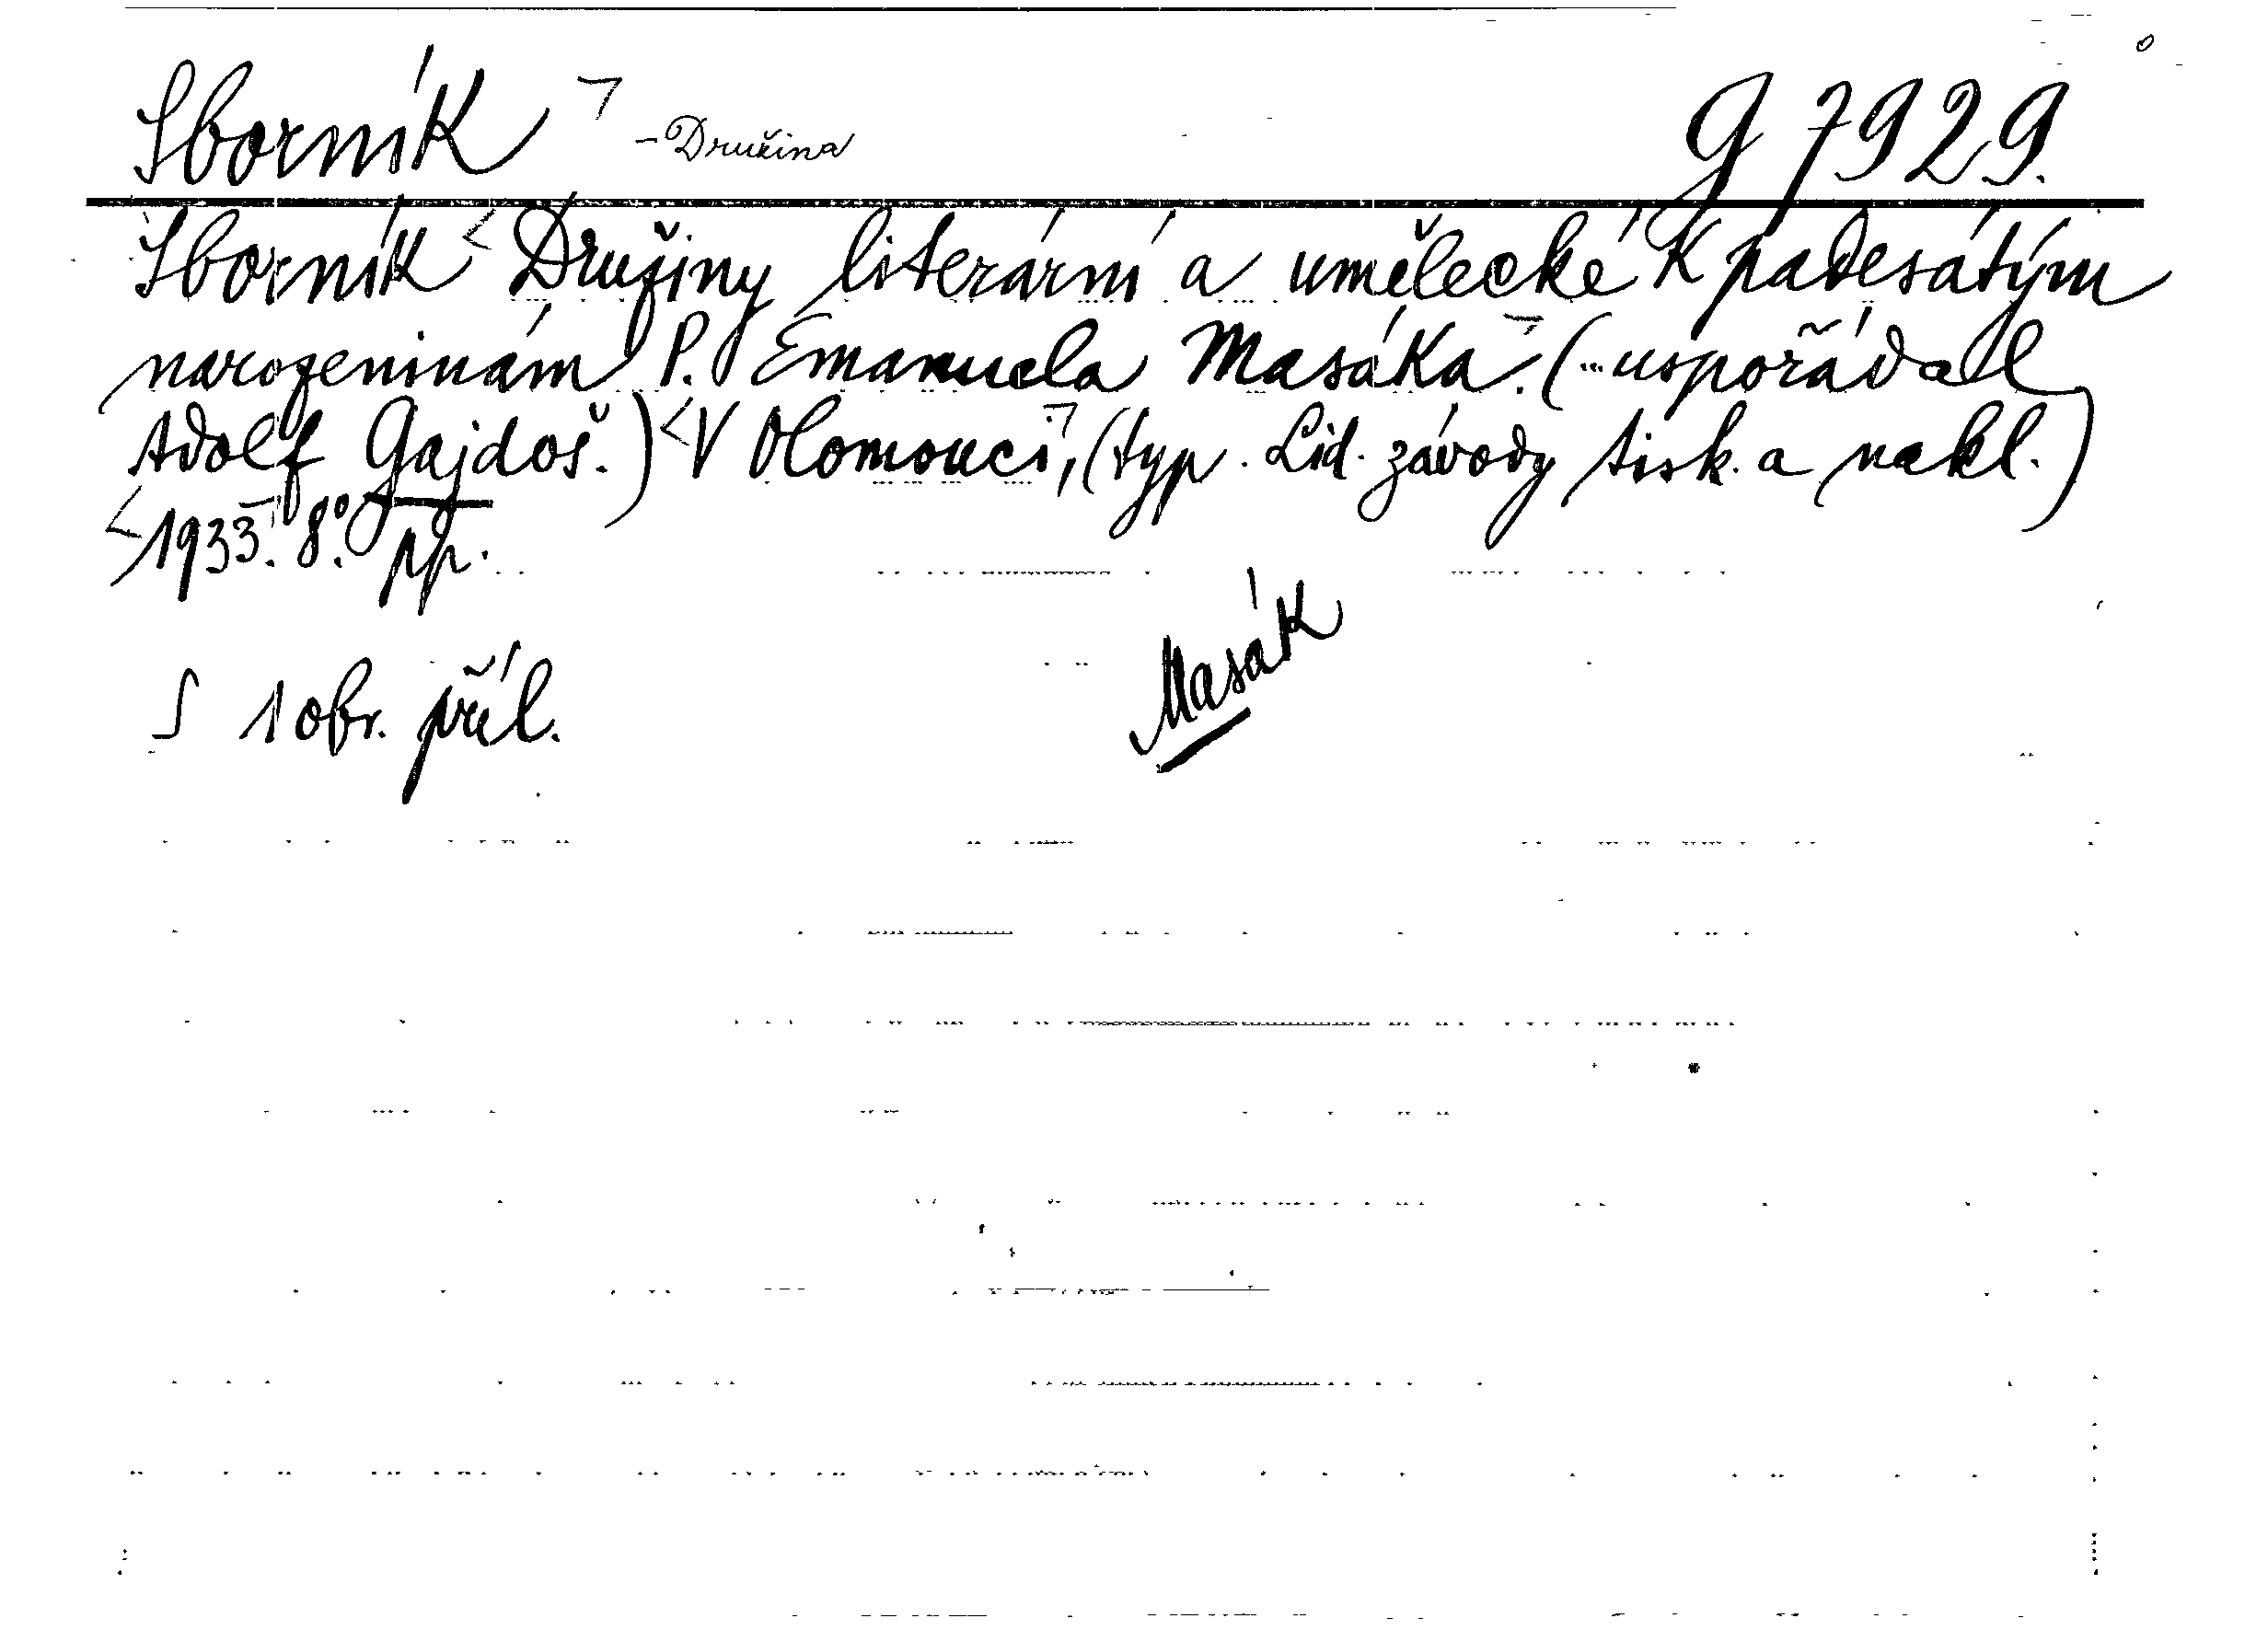 Sborník - Družina g 7929.
Sborník Družiny literární a umělecké k padesátým
narozeninám P. Emanuela Masáka. (... uspořádal
Adolf Gajdoš.) V Olomouci, (typ. Lid. závody tisk. a nakl.)
1933. 8°. pp.
Masák
S 1 obr. příl.